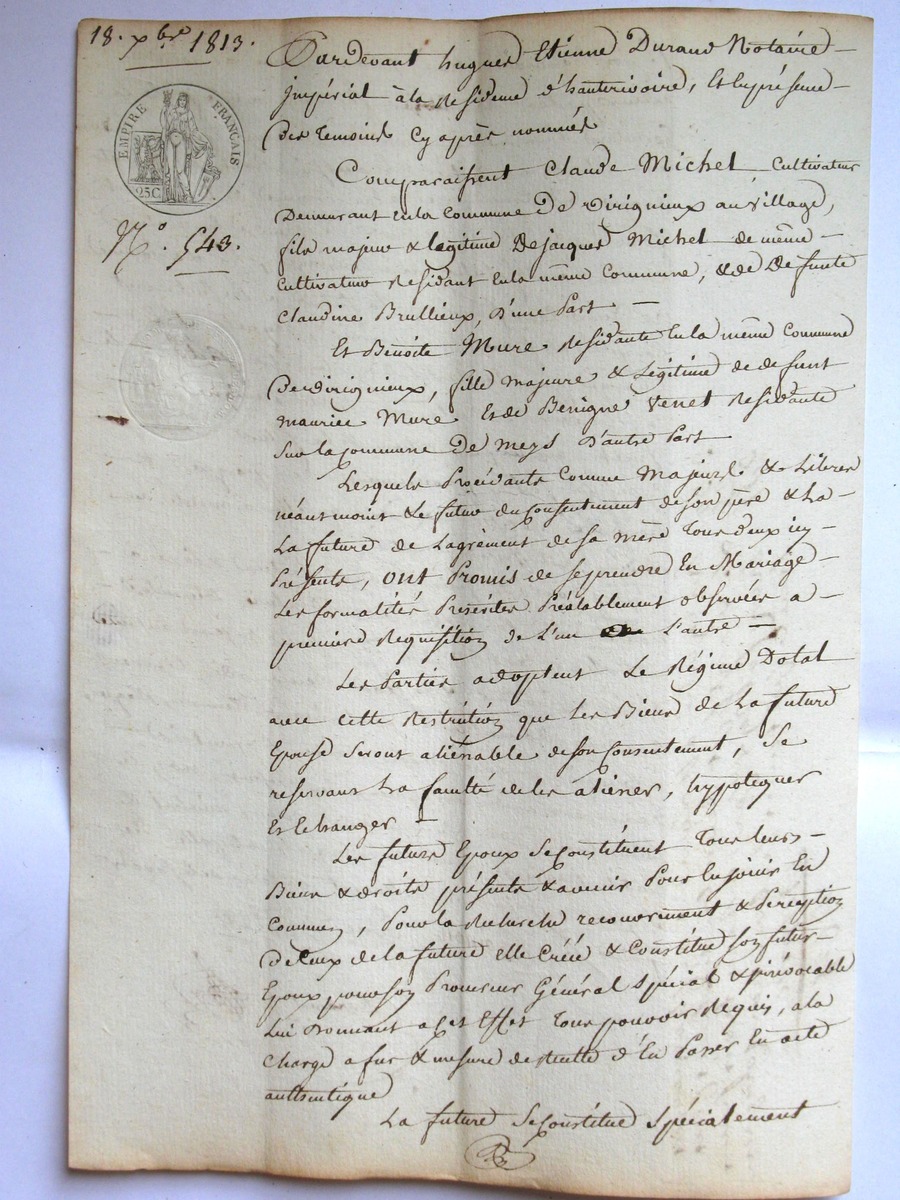 18. xbre 1813.
EMPIRE FRANÇAIS
25C
No. 543.
Pardevant hugues Etienne Durand Notaire
jmpérial à la residence d'hauterivoire, Et en présence
Des temoins Cy après nommés
Comparaissent Claude Michel Cultivateur
Demeurant En la Commune De virigneux au village,
fils majeur & légitime De jacques Michel de même
Cultivateur residant En la même Commune, & de Defunte
Claudine Brullieux, D'une Part
Et Benoite Mure residante En la même Commune
De virigneux, fille majeure & Légitime de defunt
maurice Mure Et de Benigne Venet residante
Sur la commune de meys D'autre Part
Lesquels Procédants Comme Majeurs & Libres
néantmoins Le futur du Consentement de Son père & La
La future de Lagrément de Sa mère Tous deux icy
Présents, ont Promis de Se prendre En Mariage
Les formalités Prescrites Préalablement observées a
premiere Requisition de L'un L'autre
Les Parties adoptent Le Régime Dotal
avec cette restriction que Les Biens de La future
Epouse Seront aliénable de son Consentement, Se
reservant La faculté de les aliener, hypotequer
Et Echanger
Les futurs Epoux Se Constituent Tous leurs
Biens & droits présents & avenir Pour En jouir En
Commun, Pour la Recherche recouvrement & Perception
de Ceux de la future elle Créée & Constitue Son futur
Epoux pour son Procureur Général Spécial & jrrévocable
Lui Donnant a cet Effet Tous pouvoir Requis, a la
Charge a fur & mesure de recette d'En Passer En acte
authentique
La future Se Constitue Spécialement